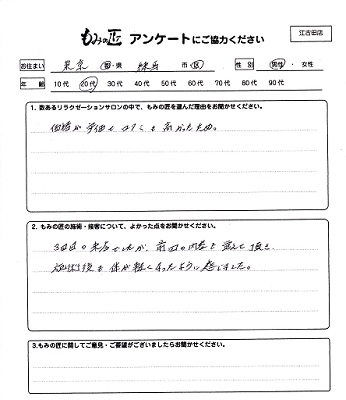 もみの匠 アンケートにご協力ください 江古田店
お住まい 東京 都・県 練馬 市・区 性別 男性・女性
年齢 10代 20代 30代 40代 50代 60代 70代 80代 90代
1. 数あるリラクゼーションサロンの中で、もみの匠を選んだ理由をお聞かせください。
価格が 評価も 高かったため。
2. もみの匠の施術・接客について、よかった点をお聞かせください。
3回目の来店でしたが、前回の内容を覚えて頂き
施術後も体が軽くなったように感じました。
3.もみの匠に関してご意見・ご要望がございましたらお聞かせください。